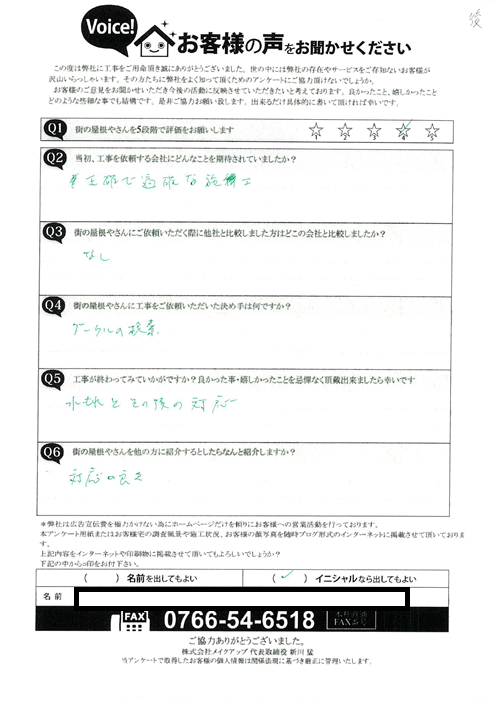 後
Voice! お客様の声をお聞かせください
この度は弊社に工事をご用命頂き誠にありがとうございます。世の中には弊社の存在やサービスをご存知ないお客様が
沢山いらっしゃいます。その方たちに弊社をよく知って頂くためのアンケートにご協力頂けないでしょうか。
お客様のご意見をお聞かせいただき今後の活動に反映させていただきたいと考えております。良かったこと、嬉しかったこと
どのような些細な事でも結構です。是非ご協力お願い致します。出来るだけ具体的に書いて頂ければ幸いです。
Q1 街の屋根やさんを5段階で評価をお願いします ☆1 ☆2 ☆3 ☆4 ☆5
Q2 当初、工事を依頼する会社にどんなことを期待されていましたか?
正確で適確な施工
Q3 街の屋根やさんにご依頼いただく際に他社と比較しました方はどこの会社と比較しましたか?
なし
Q4 街の屋根やさんに工事をご依頼いただいた決め手は何ですか?
グーグルの検索
Q5 工事が終わってみていかがですか?良かった事・嬉しかったことを忌憚なく頂戴出来ましたら幸いです
水もれとその後の対応
Q6 街の屋根やさんを他の方に紹介するとしたらなんと紹介しますか?
対応の良さ
*弊社は広告宣伝費を極力かけない為にホームページだけを頼りにお客様への営業活動を行っております。
本アンケート用紙またはお客様宅の調査風景や施工状況、お客様の顔写真を随時ブログ形式のインターネットに掲載させて頂いております。
上記内容をインターネットや印刷物に掲載させて頂いてもよろしいでしょうか?
下記の中から○印をお付下さい。
( ) 名前を出してもよい ( ✓ ) イニシャルなら出してもよい
名前
FAX 0766-54-6518
ご協力ありがとうございました。
株式会社メイクアップ 代表取締役 新川 猛
当アンケートで取得したお客様の個人情報は関係法規に基づき厳正に管理いたします。